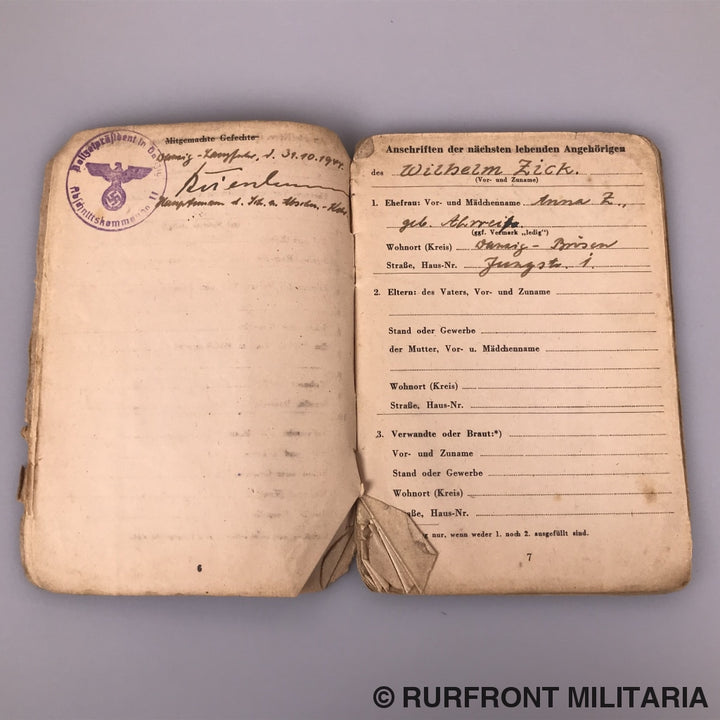 Mitgemachte Gefechte
Danzig-Langfuhr, d. 31.10.1944
Hauptmann d. Sch. u.
6
Anschriften der nächsten lebenden Angehörigen
des Wilhelm Zick.
(Vor- und Zuname)
1. Ehefrau: Vor- und Mädchenname Anna Z.,
geb.
(ggf. Vermerk „ledig")
Wohnort (Kreis) Danzig - Brösen
Straße, Haus-Nr. Jungstr. 1.
2. Eltern: des Vaters, Vor- und Zuname
Stand oder Gewerbe
der Mutter, Vor- u. Mädchenname
Wohnort (Kreis)
Straße, Haus-Nr.
3. Verwandte oder Braut:*)
Vor- und Zuname
Stand oder Gewerbe
Wohnort (Kreis)
aße, Haus-Nr.
g nur, wenn weder 1. noch 2. ausgefüllt sind.
7
Polizeipräsident in
Abschnittskommando II
© RURFRONT MILITARIA